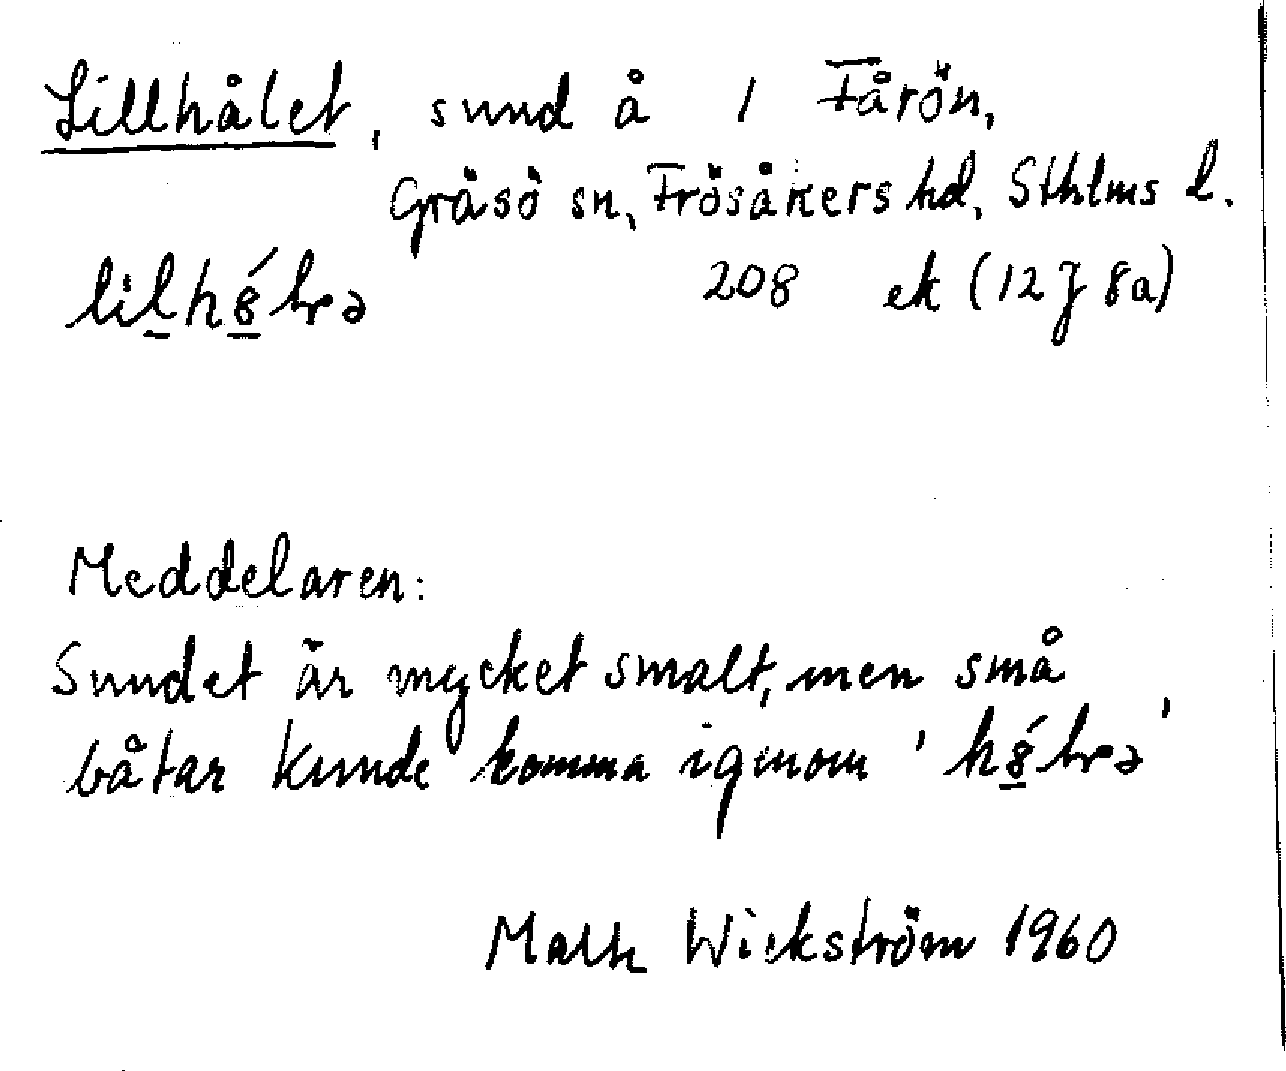 Lillhålet, sund å 1 Fårön,
Gräsö sn, Frösåkers hd, Sthlms l.
208 ek (12J 8a)
Meddelaren:
Sundet är mycket smalt, men små
båtar kunde komma igenom
Wickström 1960